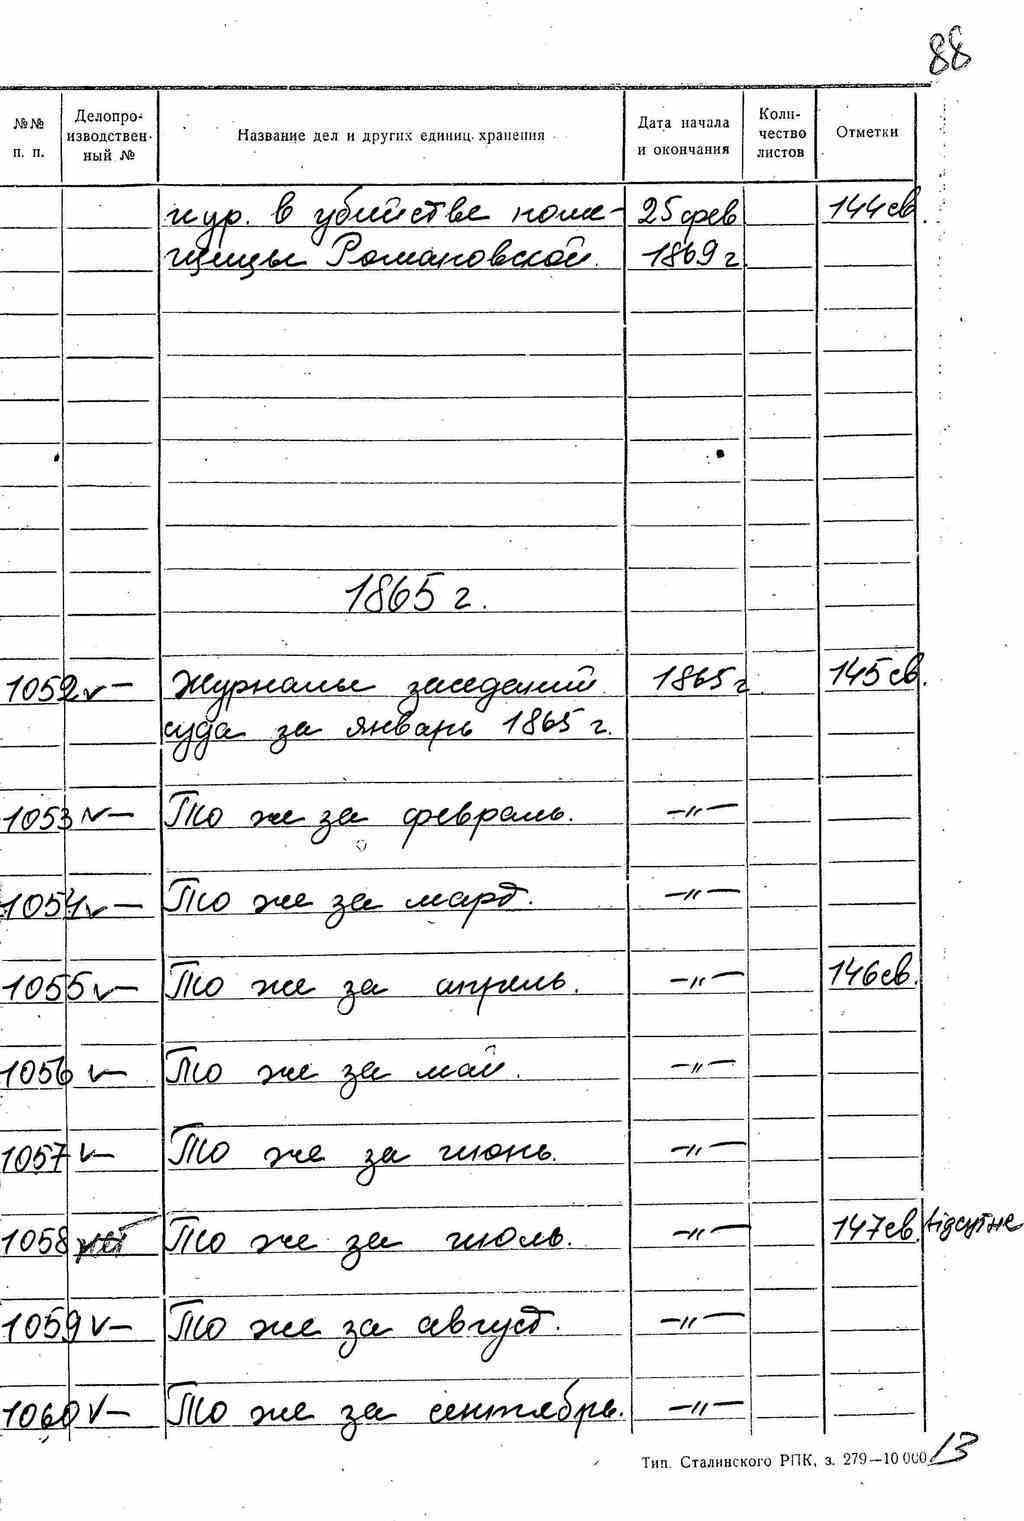 88
№№ п. п. Делопро- изводствен- ный № Название дел и других единиц хранения Дата начала и окончания Коли- чество листов Отметки
кур. в убийстве поме- 25 фев 144 св.
щицы Романовской. 1869 г.
1865 г.
1052 v — Журналы заседаний 1865 г. 145 св.
суда за январь 1865 г.
1053 v — То же за февраль. —"—
1054 v — То же за март. —"—
1055 v — То же за апрель. —"— 146 св.
1056 v — То же за май. —"—
1057 v — То же за июнь. —"—
1058 нет То же за июль. —"— 147 св. відсутнє
1059 v — То же за август. —"—
1060 v — То же за сентябрь. —"—
Тип. Сталинского РПК, з. 279—10 000
13